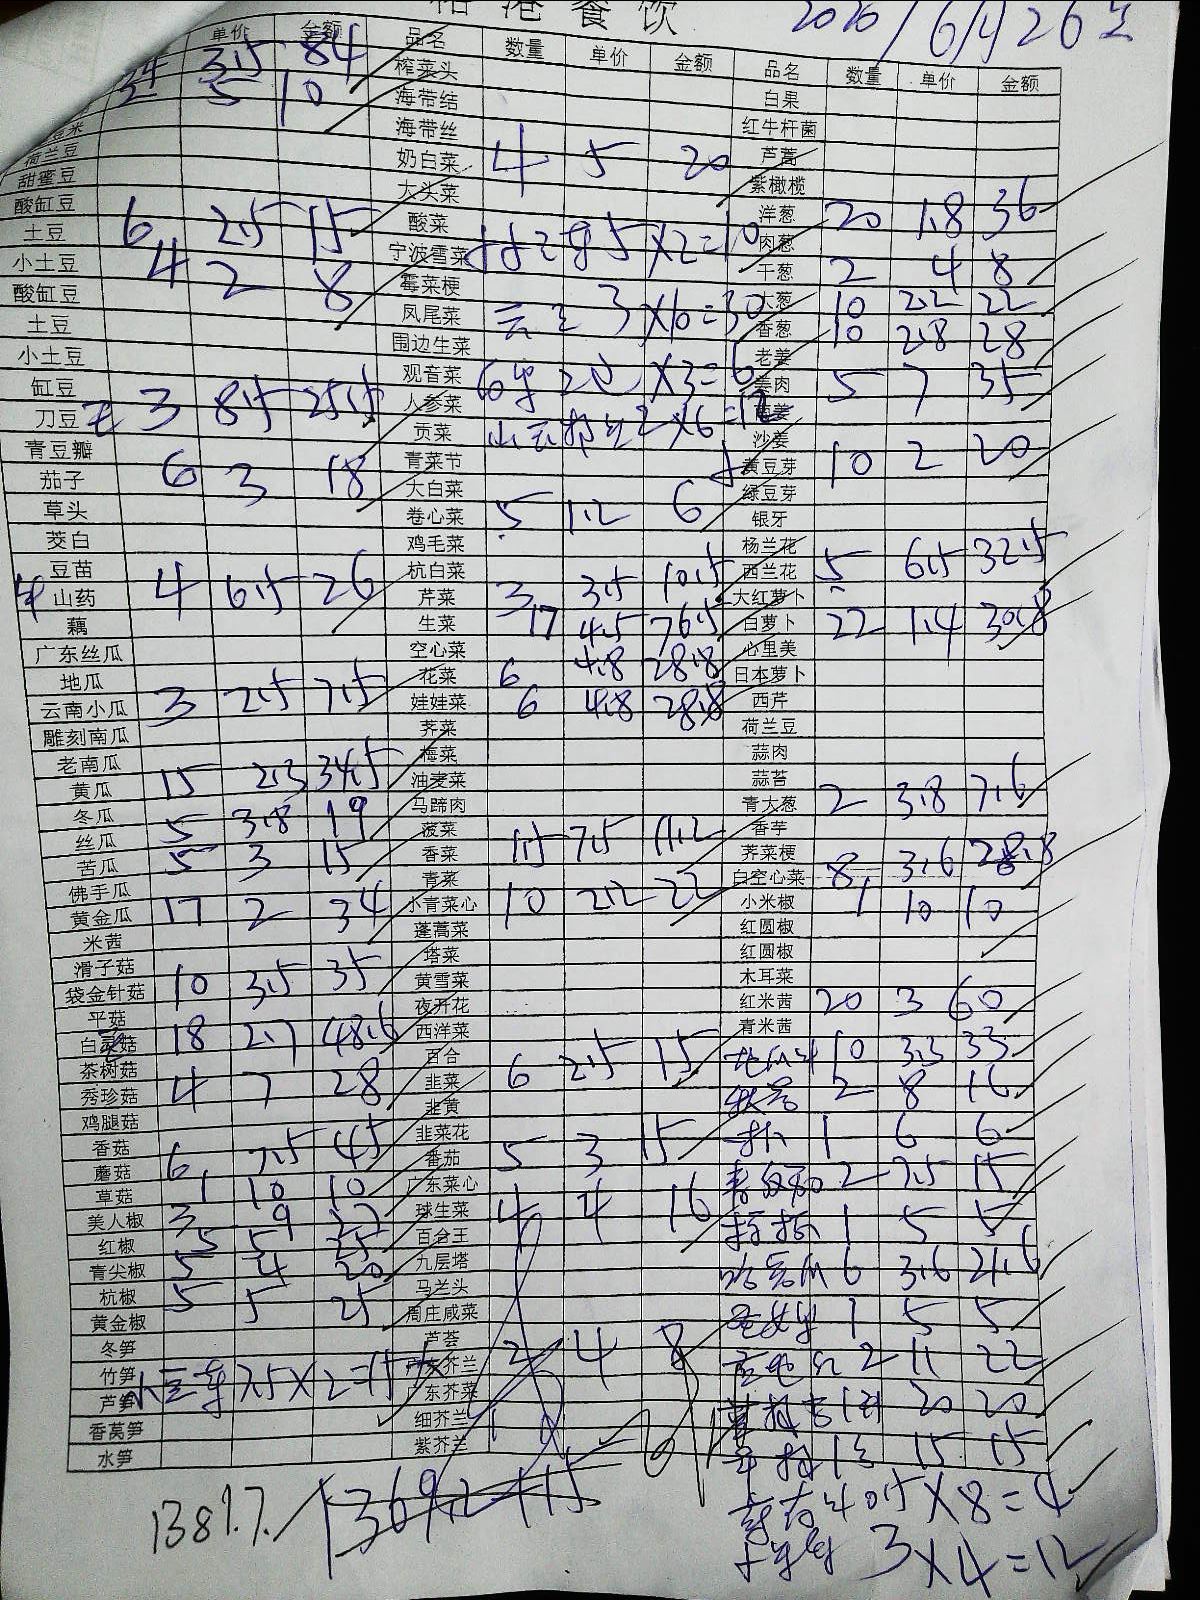 港餐饮 2020/6月26日
单价 金额 品名 数量 单价 金额 品名 数量 单价 金额
3.5 84 榨菜头 白果
5 10 海带结 红牛杆菌
海带丝 芦蒿
荷兰豆 奶白菜 4 5 20 紫橄榄
甜蜜豆 大头菜 洋葱 20 1.8 36
酸缸豆 6 2.5 15 酸菜 肉葱
土豆 4 2 8 宁波雪菜 5×2=10 干葱 2 4 8
小土豆 霉菜梗 大葱 10 2.2 22
酸缸豆 凤尾菜 3×10=30 香葱 10 2.8 28
土豆 围边生菜 老姜
小土豆 观音菜 ×3=6 姜肉 5 7 35
缸豆 3 8.5 25.5 人参菜 2×6=12 南姜
刀豆 贡菜 沙姜
青豆瓣 青菜节 黄豆芽 10 2 20
茄子 6 3 18 大白菜 绿豆芽
草头 卷心菜 5 1.2 6 银牙
茭白 鸡毛菜 杨兰花
豆苗 杭白菜 西兰花 5 6.5 32.5
山药 4 6.5 26 芹菜 3 3.5 10.5 大红萝卜
藕 生菜 17 4.5 76.5 白萝卜 22 1.4 30.8
广东丝瓜 空心菜 心里美
地瓜 花菜 6 4.8 28.8 日本萝卜
云南小瓜 3 2.5 7.5 娃娃菜 6 4.8 28.8 西芹
雕刻南瓜 荠菜 荷兰豆
老南瓜 梅菜 蒜肉
黄瓜 15 2.3 34.5 油麦菜 蒜苔
冬瓜 马蹄肉 青大葱 2 3.8 7.6
丝瓜 5 3.8 19 菠菜 1.5 7.5 11.2 香芋
苦瓜 5 3 15 香菜 荠菜梗
佛手瓜 青菜 白空心菜 8 3.6 28.8
黄金瓜 17 2 34 小青菜心 10 2.2 22 小米椒 1 10 10
米茜 蓬蒿菜 红圆椒
滑子菇 塔菜 红圆椒
袋金针菇 10 3.5 35 黄雪菜 木耳菜
平菇 夜开花 红米茜 20 3 60
白灵菇 18 2.7 48.6 西洋菜 青米茜
茶树菇 百合 10 3.3 33
秀珍菇 4 7 28 韭菜 6 2.5 15 2 8 16
鸡腿菇 韭黄 1 6 6
香菇 韭菜花 2 7.5 15
蘑菇 6 7.5 45 番茄 5 3 15
草菇 1 10 10 广东菜心 1 5 5
美人椒 3 9 27 球生菜 4 4 16
红椒 5 5 25 百合王 哈密瓜 6 3.6 21.6
青尖椒 5 4 20 九层塔
杭椒 5 5 25 马兰头 1 5 5
黄金椒 周庄咸菜
冬笋 芦荟 2 11 22
竹笋 广东芥兰 2 4 8
芦笋 7.5×2=15 广东芥菜 20 20
香莴笋 细芥兰
水笋 紫芥兰 15 15
0.5×8=4
1387.7 1369.2+15 3×4=12